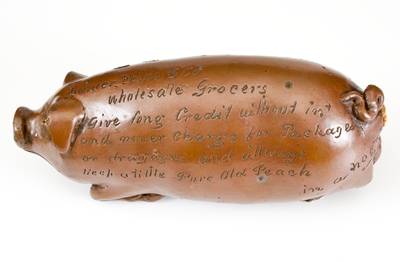 Wholesale Grocers
Give long Credit without int
and never Charge for Packages
or drayage and always
keep a little pure Old Peach
in a